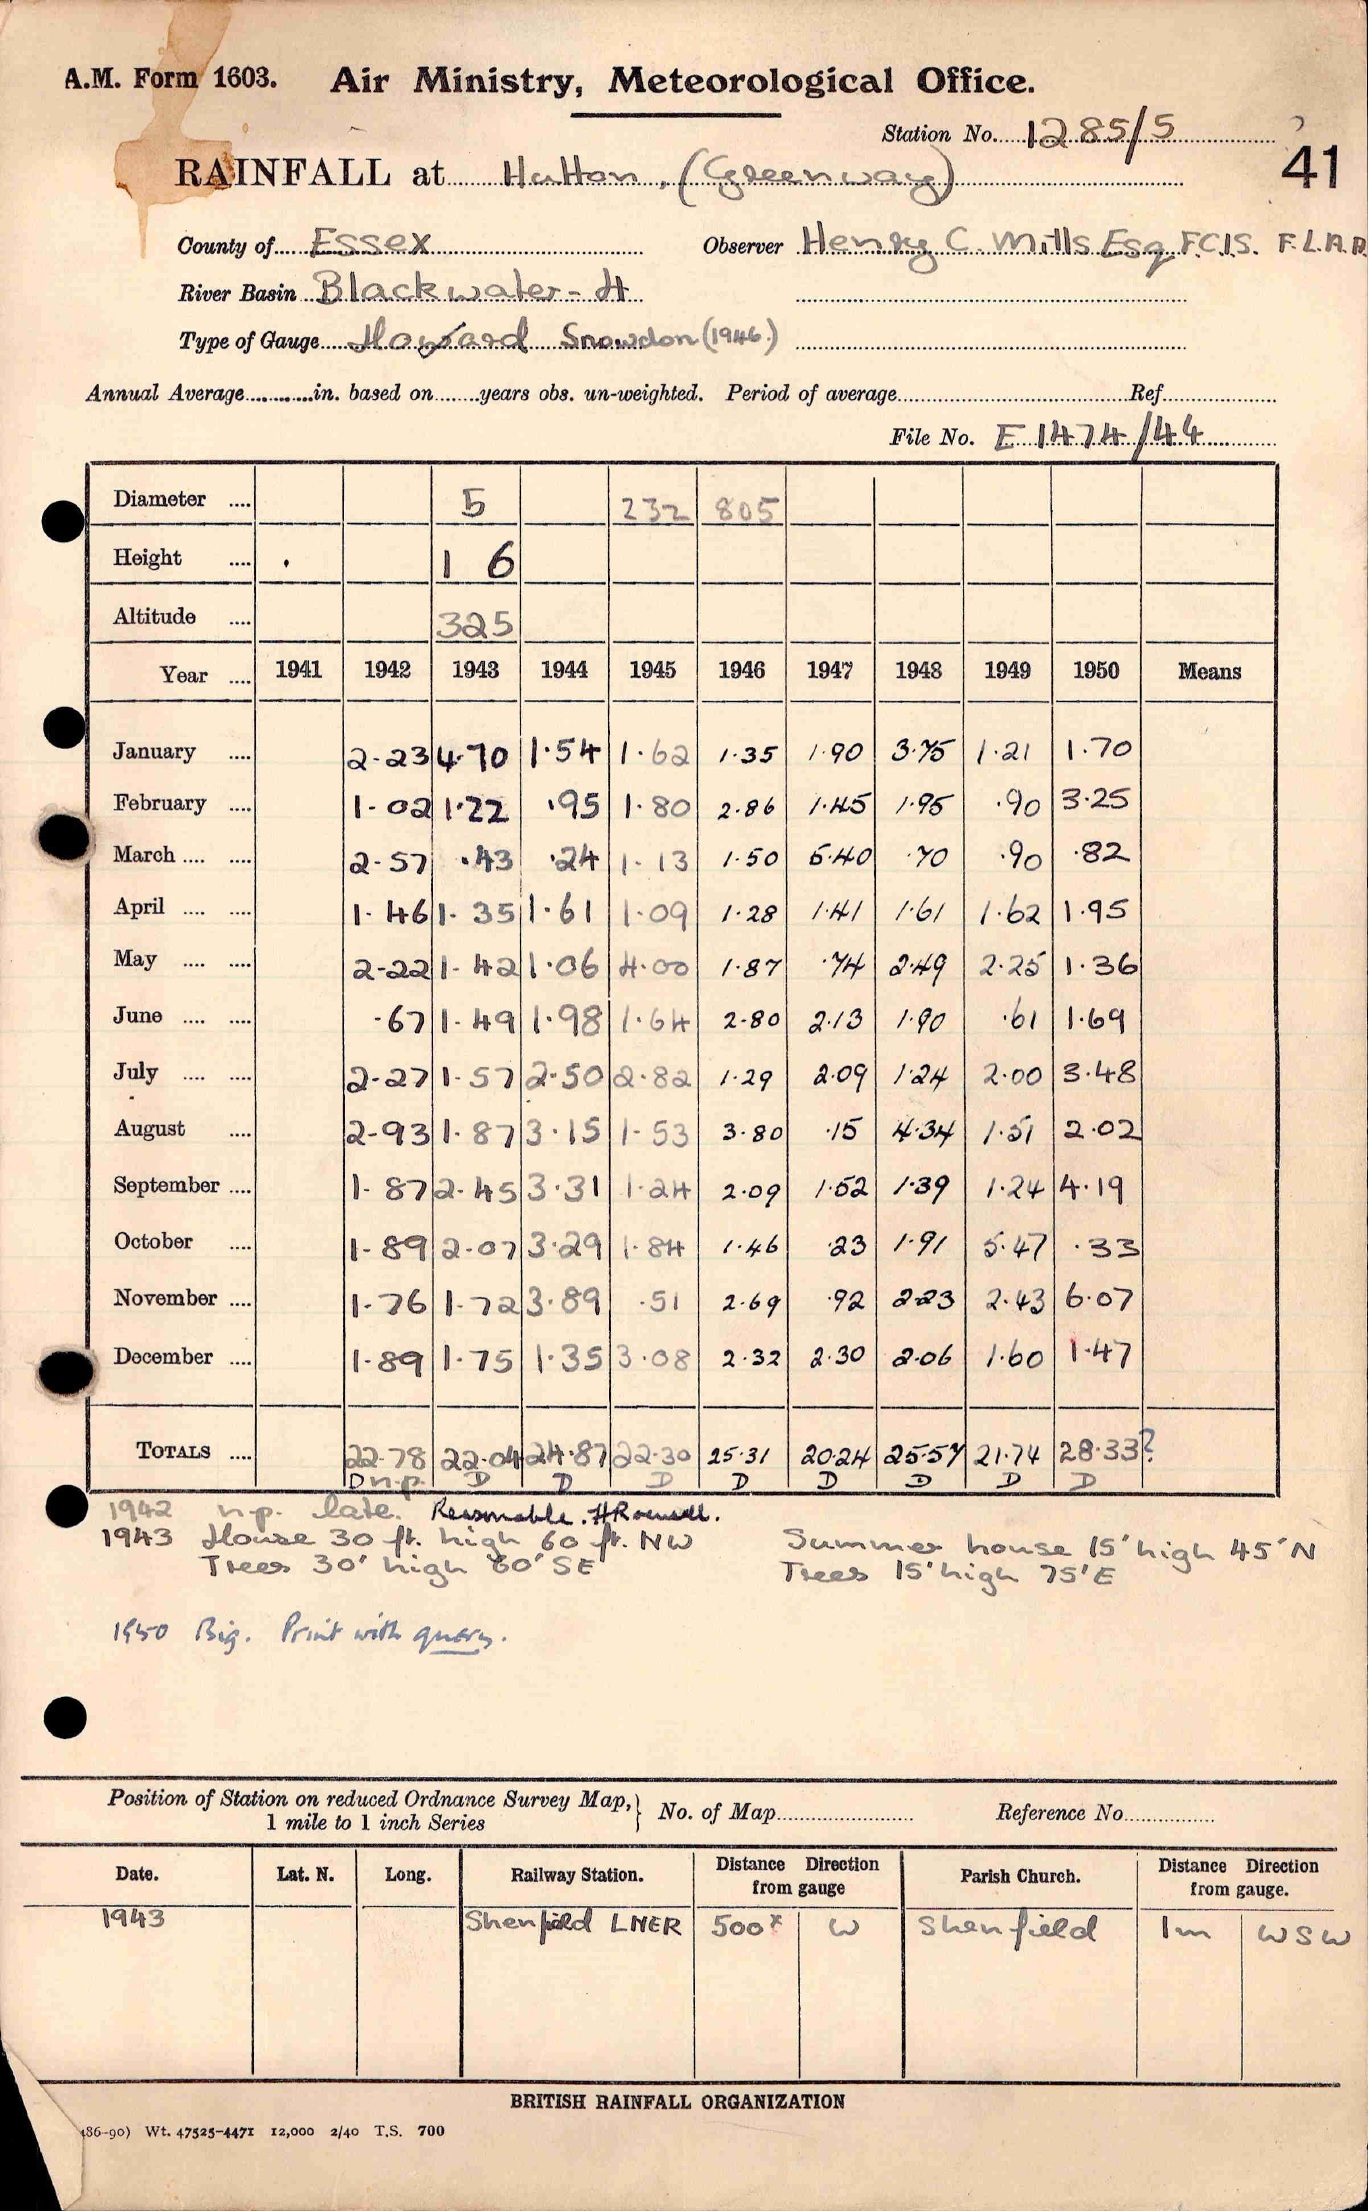 A.M. Form 1603. Air Ministry, Meteorological Office.
Station No. 1285/5
41
RAINFALL at Hutton, (Greenway)
County of Essex Observer Henry C. Mills Esq F.C.I.S. F.L.A.A.
River Basin Blackwater-H
Type of Gauge Howard Snowdon (1946)
Annual Average in. based on years obs. un-weighted. Period of average Ref
File No. E 1474/44
Diameter .... 5 232 805
Height .... 1 6
Altitude .... 325
Year .... 1941 1942 1943 1944 1945 1946 1947 1948 1949 1950 Means
January .... 2-23 4.70 1.54 1.62 1.35 1.90 3.75 1.21 1.70
February .... 1-02 1.22 .95 1.80 2.86 1.45 1.95 .90 3.25
March .... .... 2-57 .43 .24 1.13 1.50 5.40 .70 .90 .82
April .... .... 1-46 1-35 1.61 1.09 1.28 1.41 1.61 1.62 1.95
May .... .... 2-22 1-42 1.06 4.00 1.87 .74 2.49 2.25 1.36
June .... .... .67 1-49 1.98 1.64 2.80 2.13 1.90 .61 1.69
July .... .... 2-27 1-57 2.50 2.82 1.29 2.09 1.24 2.00 3.48
August .... 2-93 1-87 3.15 1-53 3.80 .15 4.34 1.51 2.02
September .... 1-87 2-45 3.31 1.24 2.09 1.52 1.39 1.24 4.19
October .... 1-89 2-07 3.29 1.84 1.46 .23 1.91 5.47 .33
November .... 1-76 1-72 3.89 .51 2.69 .92 2.23 2.43 6.07
December .... 1-89 1-75 1.35 3.08 2.32 2.30 2.06 1.60 1.47
TOTALS .... 22.78 22.04 24.87 22.30 25.31 20.24 25.57 21.74 28.33?
D n.p. D D D D D D D D
1942 n.p. late. Reasonable.
1943 House 30 ft. high 60 ft. NW Summer house 15' high 45' N
Trees 30' high 60' SE Trees 15' high 75' E
1950 Big. Print with query.
Position of Station on reduced Ordnance Survey Map, 1 mile to 1 inch Series } No. of Map Reference No
Date. Lat. N. Long. Railway Station. Distance Direction from gauge Parish Church. Distance Direction from gauge.
1943 Shenfield LNER 500x W Shenfield 1m WSW
BRITISH RAINFALL ORGANIZATION
86-90) Wt. 47525-4471 12,000 2/40 T.S. 700